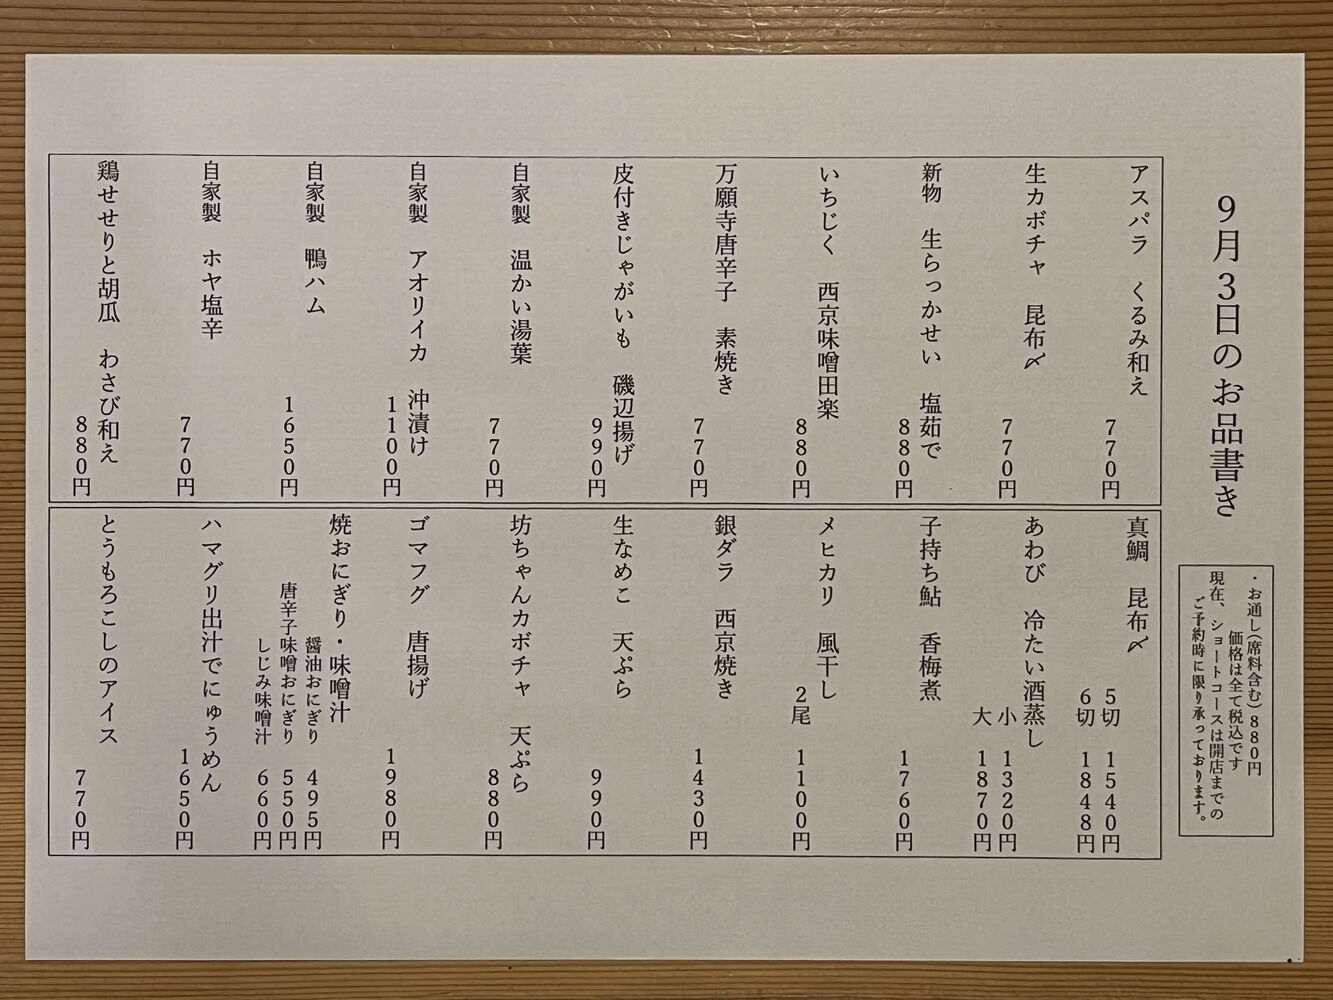 9月3日のお品書き
・お通し(席料含む)880円
価格は全て税込です
現在、ショートコースは開店までの
ご予約時に限り承っております。
アスパラ くるみ和え
770円
生カボチャ 昆布〆
770円
新物 生らっかせい 塩茹で
880円
いちじく 西京味噌田楽
880円
万願寺唐辛子 素焼き
770円
皮付きじゃがいも 磯辺揚げ
990円
自家製 温かい湯葉
770円
自家製 アオリイカ 沖漬け
1100円
自家製 鴨ハム
1650円
自家製 ホヤ塩辛
770円
鶏せせりと胡瓜 わさび和え
880円
真鯛 昆布〆
5切 1540円
6切 1848円
あわび 冷たい酒蒸し
小 1320円
大 1870円
子持ち鮎 香梅煮
1760円
メヒカリ 風干し
2尾 1100円
銀ダラ 西京焼き
1430円
生なめこ 天ぷら
990円
坊ちゃんカボチャ 天ぷら
880円
ゴマフグ 唐揚げ
1980円
焼おにぎり・味噌汁
醤油おにぎり 495円
唐辛子味噌おにぎり 550円
しじみ味噌汁 660円
ハマグリ出汁でにゅうめん
1650円
とうもろこしのアイス
770円